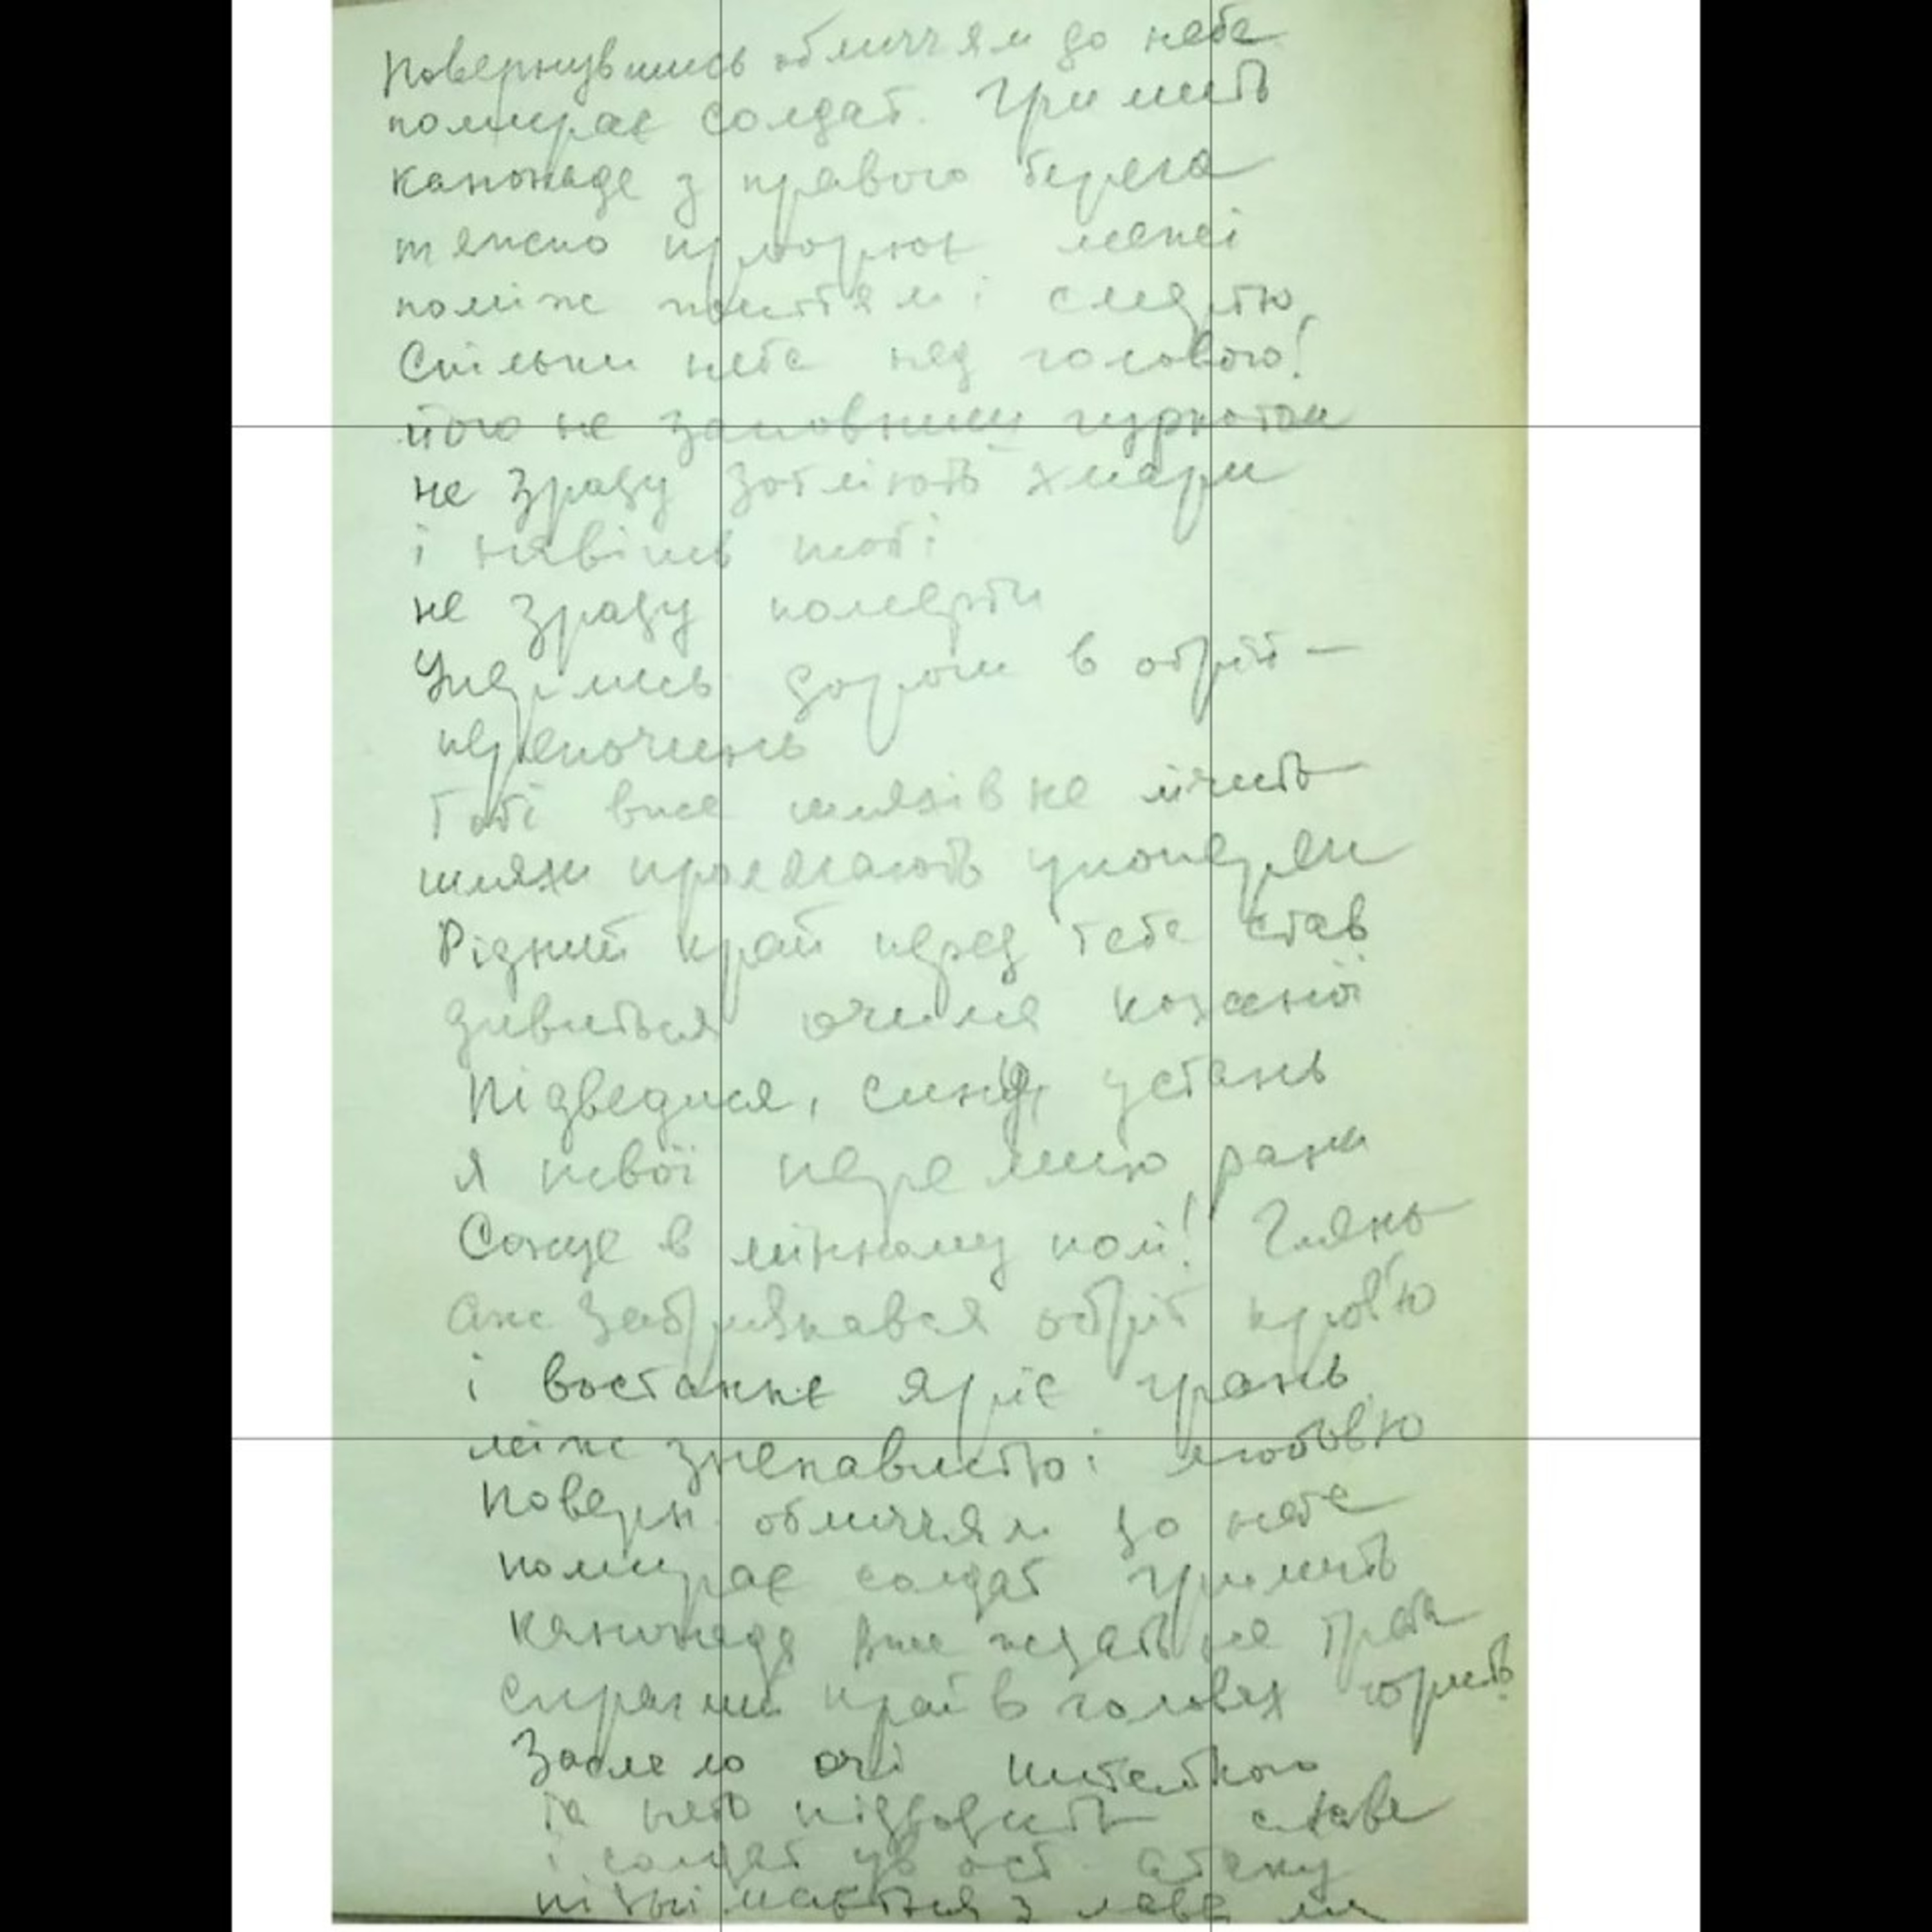 Повернувшись обличчям до неба
помирає солдат. Гримить
канонада з правого берега
тяжко прорює межі
поміж життям і смертю
Скільки неба над головою!
його не заповниш гуркотом
не зразу зотліють хмари
і навіть тобі
не зразу померти
Уперлись дороги в обрій —
перепочинь
Тобі вже шляхів не лічить
шляхи пролягають упоперек
Рідний край перед тебе став
дивиться очима коханої
Підведися, сину, устань
я твої перемию рани
Сонце в мінному полі! Глянь
Аж забризкався обрій кров'ю
і востаннє яріє грань
між зненавистю і любов'ю
Поверн. обличчям до неба
помирає солдат гримить
канонада вже ждать не треба
спраглий край в головах горить
Засмело очі
та його підводить слава
і солдат ув ост. атаку
підіймається з лави